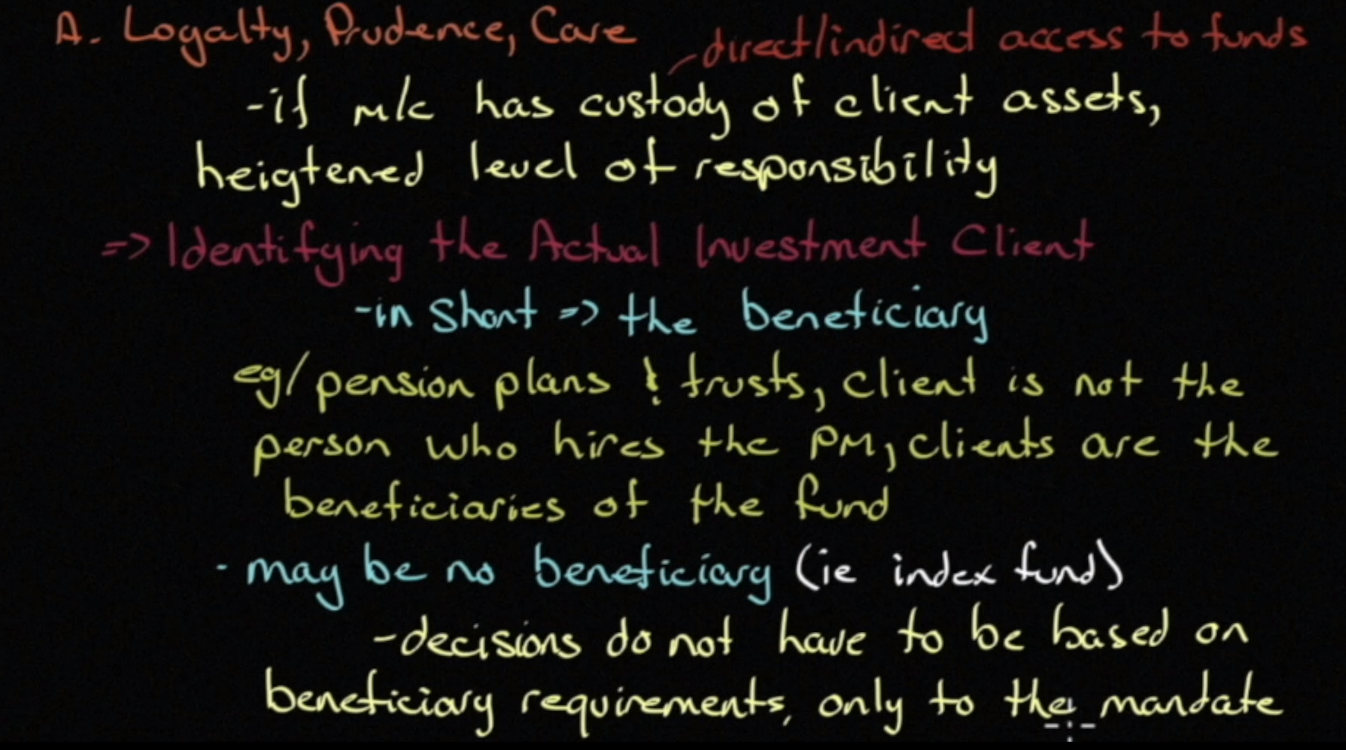 A. Loyalty, Prudence, Care
direct/indirect access to funds
-if m/c has custody of client assets,
heigtened level of responsibility
=> Identifying the Actual Investment Client
-in short => the beneficiary
eg/ pension plans & trusts, client is not the
person who hires the PM, clients are the
beneficiaries of the fund
· may be no beneficiary (ie index fund)
-decisions do not have to be based on
beneficiary requirements, only to the mandate